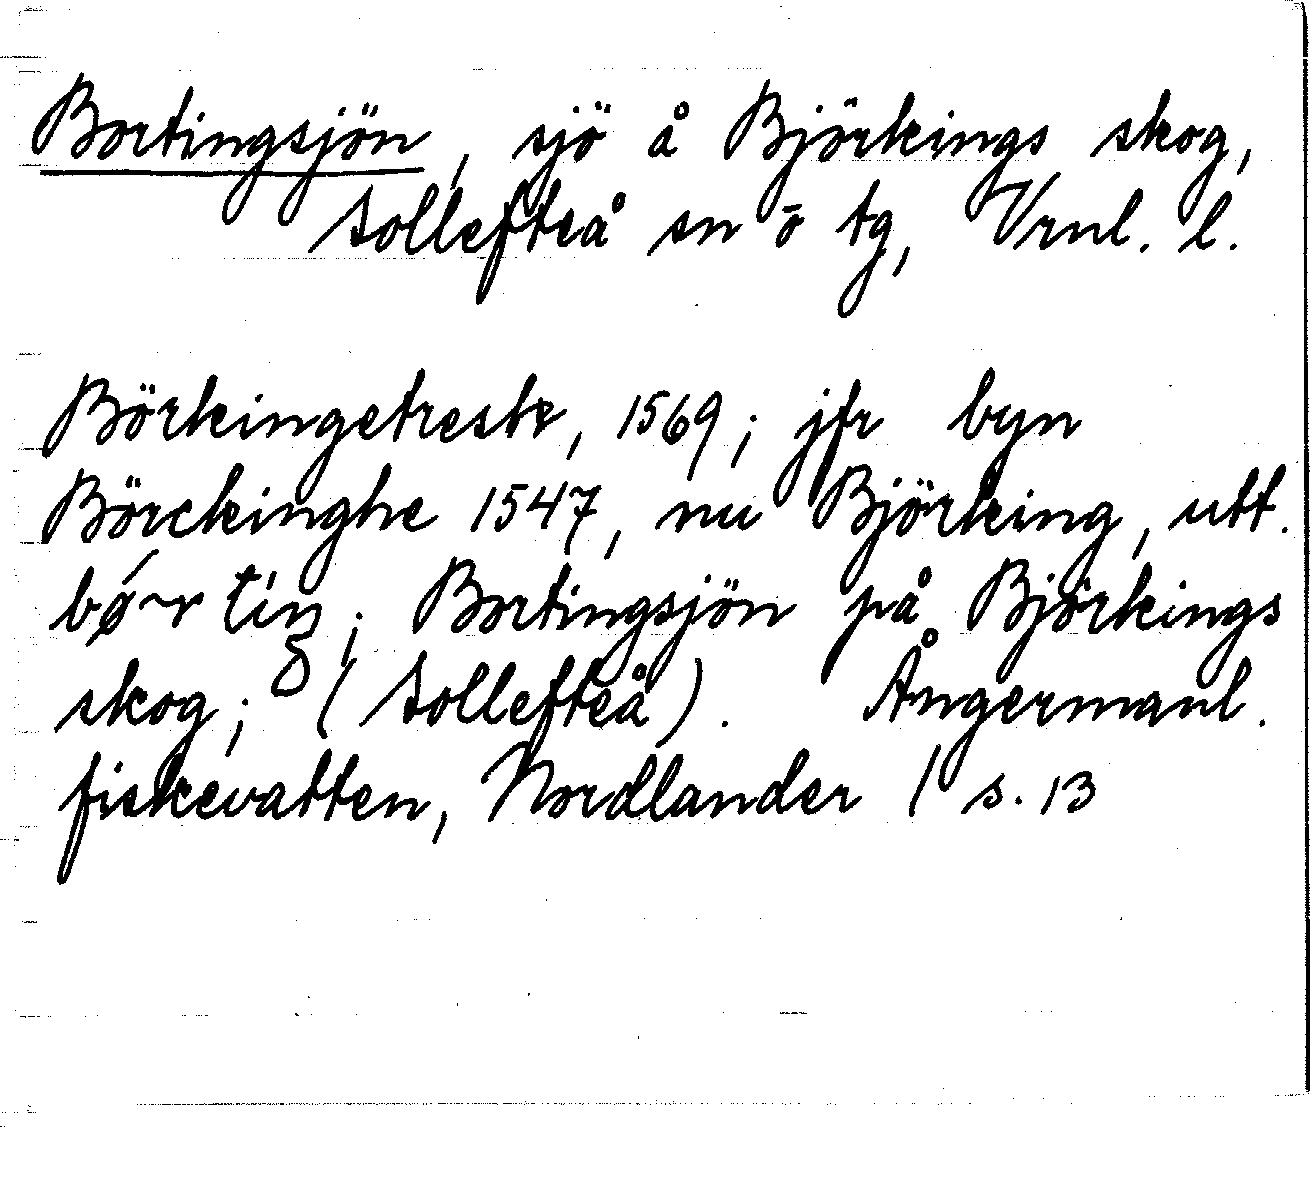 Bortingsjön, sjö å Björkings skog,
Sollefteå sn o tg, Vrnl. l.
Börkingetreske, 1569; jfr byn
Börckinghe 1547, nu Björking, utt.
Bortingsjön på Björkings
skog; (Sollefteå). Ångermanl.
fiskevatten, Nordlander / s. 13